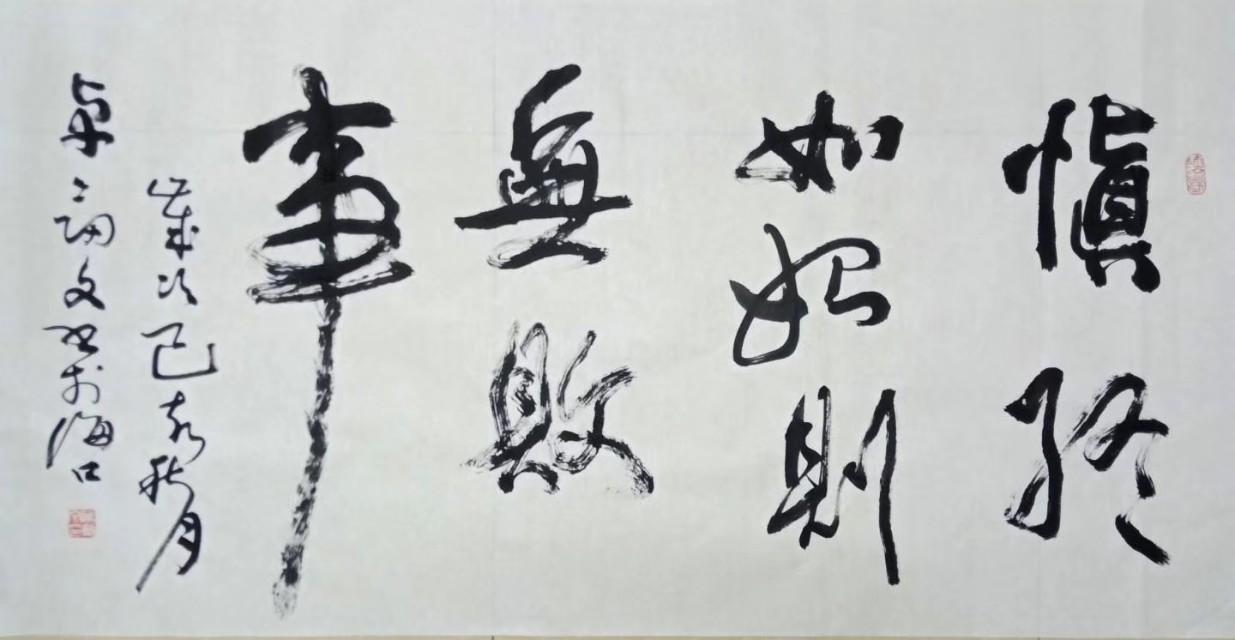 慎終
如始則
無敗
事
歲次己亥秋月
卓文書於海口